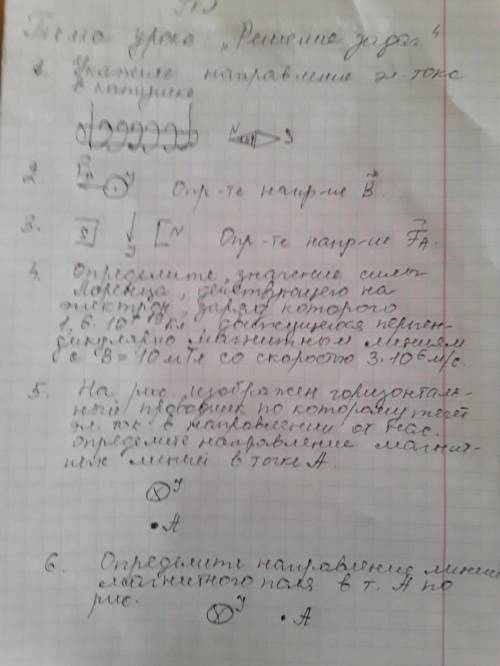 Тема урока „Решение задач“
1. Укажите направление эл. тока
в катушке
N S
2. F_A J Опр-те напр-ие B⃗.
3. S J N Опр-те напр-ие F⃗_A.
4. Определите значение силы
Лоренца, действующего на
электрон, заряд которого
Кл, движущегося перпен-
дикулярно магнитным линиям
с B = 10 мТл со скоростью 3·10⁶ м/с.
5. На рис. изображен горизонталь-
ный проводник по которому течет
эл. ток в направлении от нас.
Определите направление магнит-
ных линий в точке А.
J
• А
6. Определите направление линий
магнитного поля в т. А по
рис.
J • А